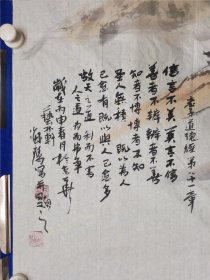 老子道德經第八十一章
信言不美 美言不信
善者不辯 辯者不善
知者不博 博者不知
聖人無積 既以為人
己愈有 既以與人己愈多
故天之道 利而不害
人之道 為而弗爭
歲在丙申春月於
藝軒